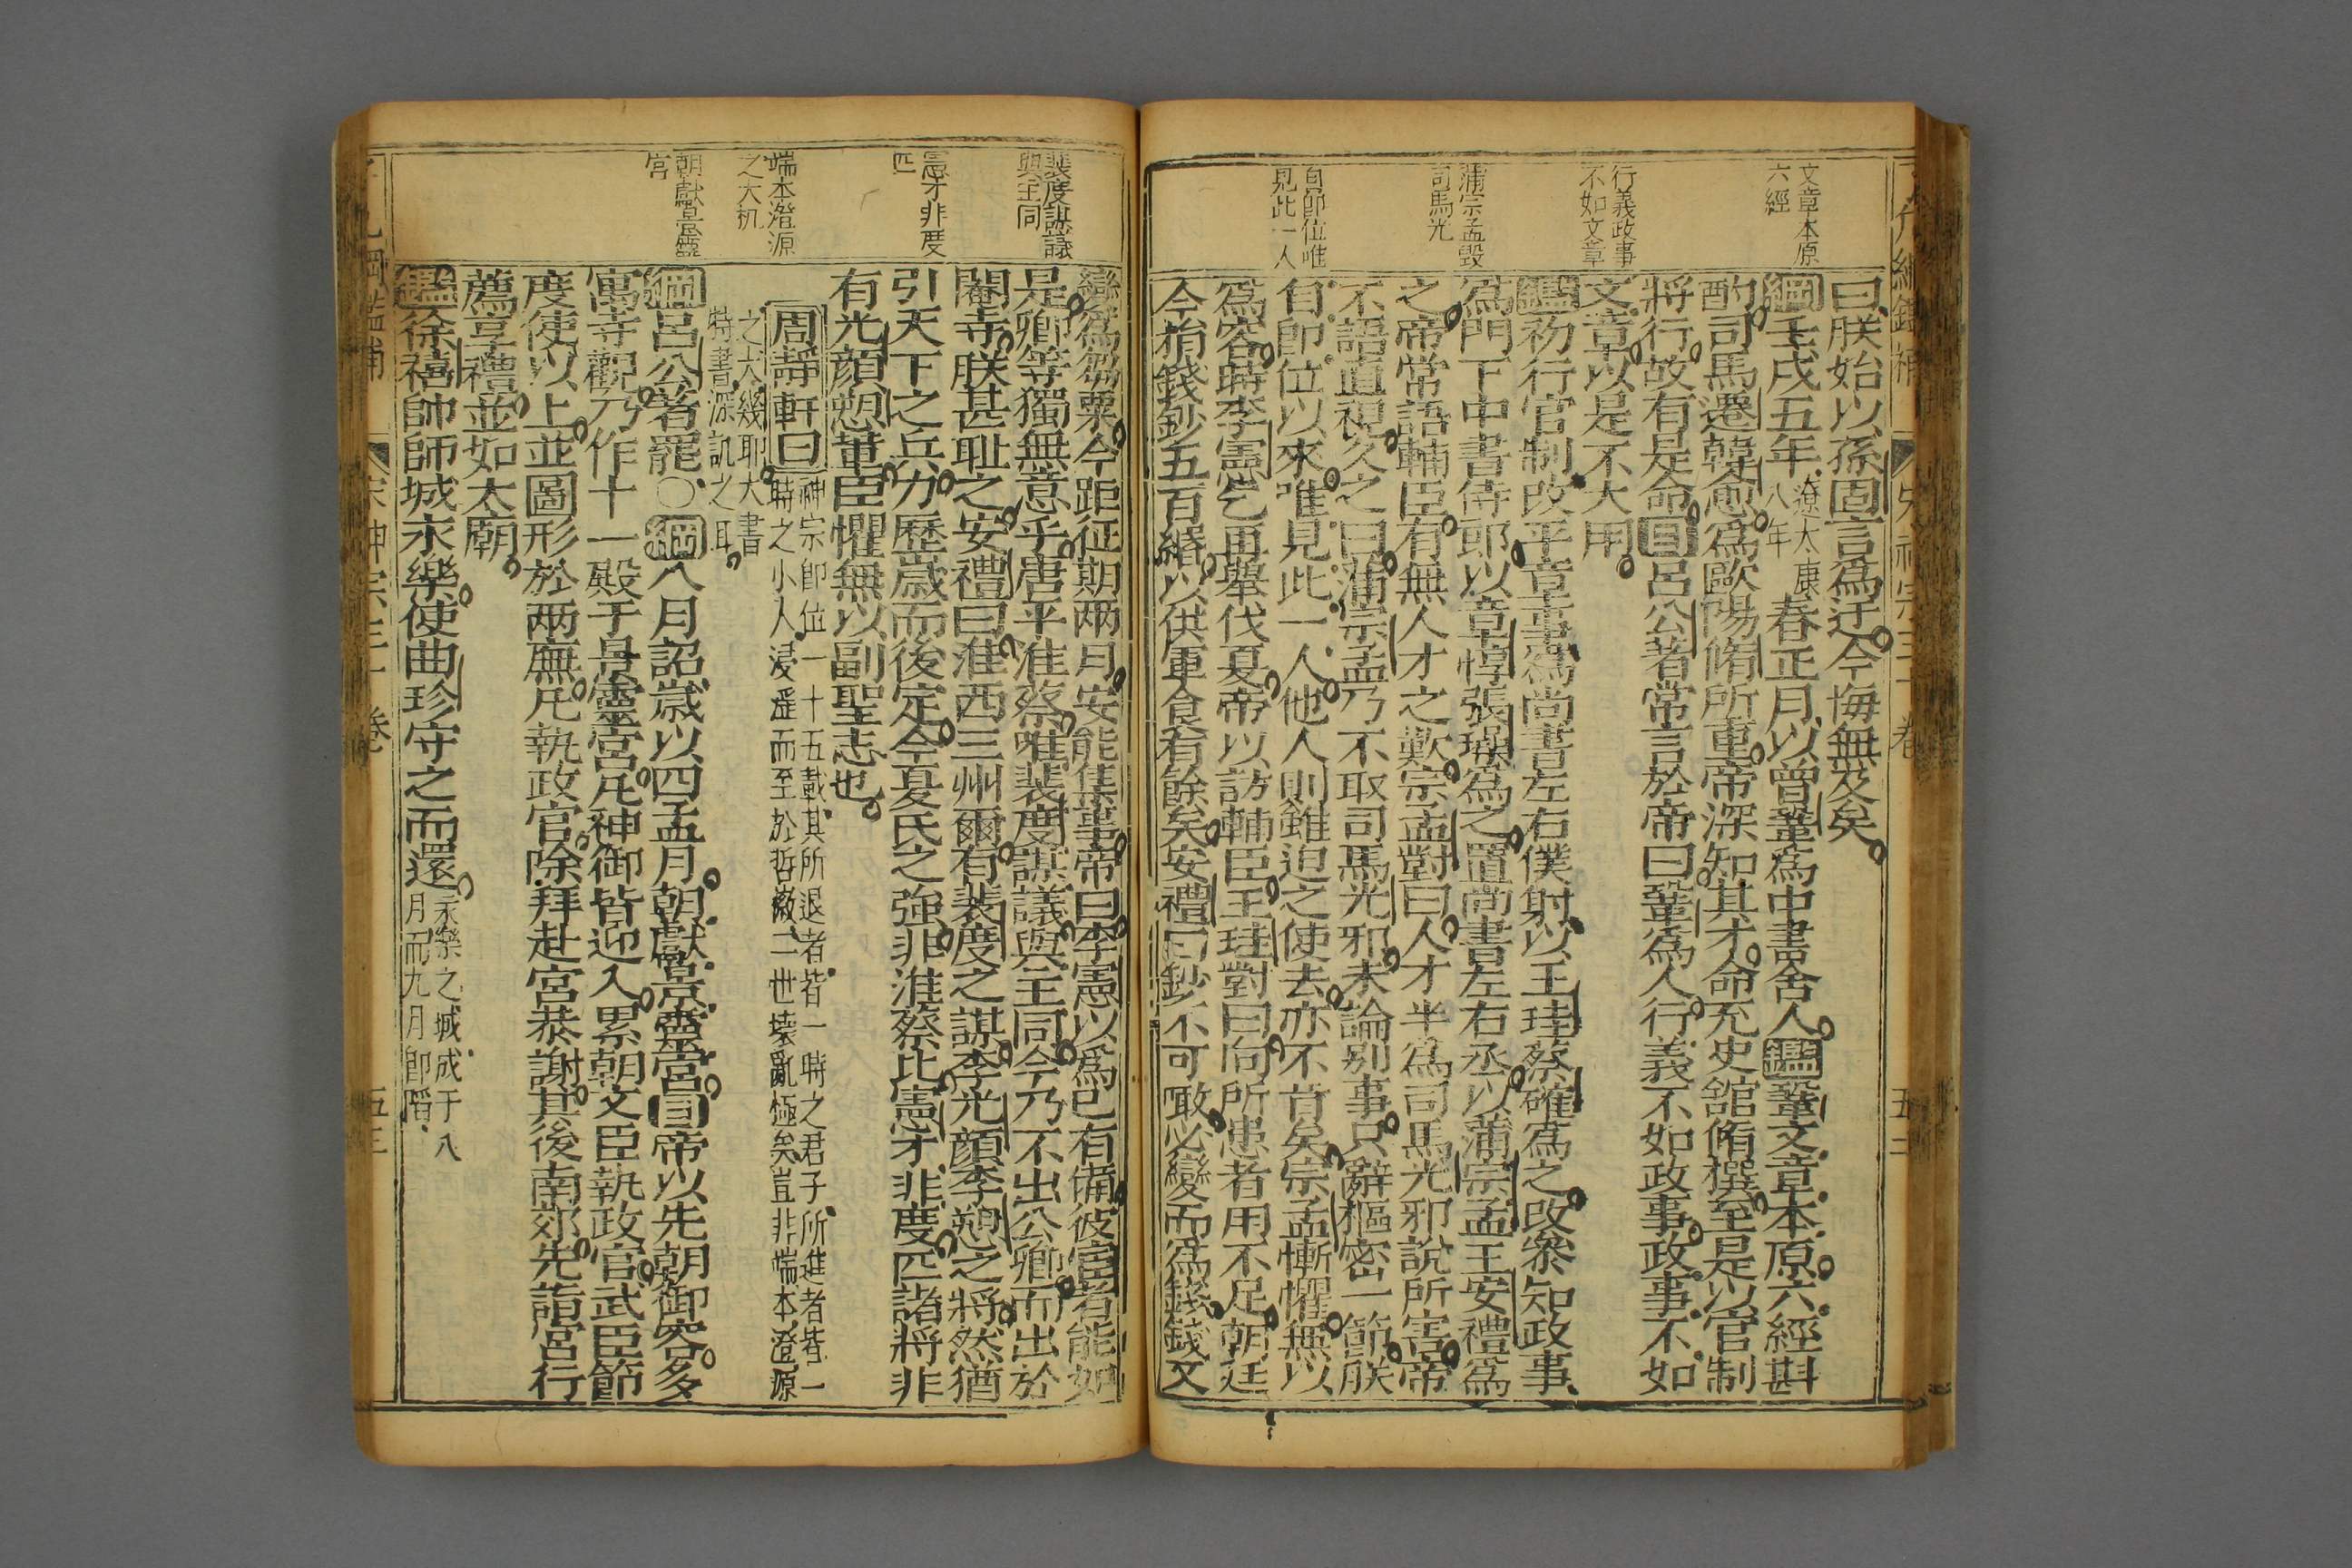 文章本原
六經
行義政事
不如文章
蒲宗孟毀
司馬光
自卽位唯
見此一人
曰朕始以孫固言爲迂今悔無及矣
綱壬戌五年遼太康八年春正月以曾鞏爲中書舍人鑑鞏文章本原六經斟
酌司馬遷韓愈爲歐陽脩所重帝深知其才命充史舘脩撰至是以官制
將行故有是命目呂公著常言於帝曰鞏爲人行義不如政事政事不如
文章以是不大用
鑑初行官制改平章事爲尚書左右僕射以王珪蔡確爲之改參知政事
爲門下中書侍郎以章惇張璪爲之置尚書左右丞以蒲宗孟王安禮爲
之帝常語輔臣有無人才之歎宗孟對曰人才半爲司馬光邪說所害帝
不語直視久之曰蒲宗孟乃不取司馬光邪未論别事只辭樞密一節朕
自卽位以來唯見此一人他人則雖迫之使去亦不肯矣宗孟慚懼無以
爲容時李憲乞再舉伐夏帝以訪輔臣王珪對曰向所患者用不足朝廷
今捐錢鈔五百緡以供軍食有餘矣安禮曰鈔不可噉必變而爲錢錢又
裴度謀議
與主同
憲才非度
匹
端本澄源
之大机
朝獻景靈
宮
變爲芻粟今距征期兩月安能集事帝曰李憲以爲已有備彼宦者能如
是卿等獨無意乎唐平淮蔡唯裴度謀議與主同今乃不出公卿而出於
閹寺朕甚耻之安禮曰淮西三州爾有裴度之謀李光顏李愬之將然猶
引天下之兵力歷歲而後定今夏氏之強非淮蔡比憲才非度匹諸將非
有光顏愬輩臣懼無以副聖志也
周靜軒曰神宗卽位一十五載其所退者皆一時之君子所進者皆一
時之小人浸遥而至於哲徽二世壊亂極矣豈非端本澄源
之大幾耶大書
特書深訊之耳
綱呂公著罷〇綱八月詔歲以四孟月朝獻景靈宮目帝以先朝御容多
寓寺觀乃作十一殿于景靈宮凡神御皆迎入累朝文臣執政官武臣節
度使以上並圖形於兩廡凡執政官除拜赴宮恭謝其後南郊先詣宮行
薦享禮並如太廟
鑑徐禧帥師城永樂使曲珍守之而還永樂之城成于八
月而九月卽陷
宋神宗
五三